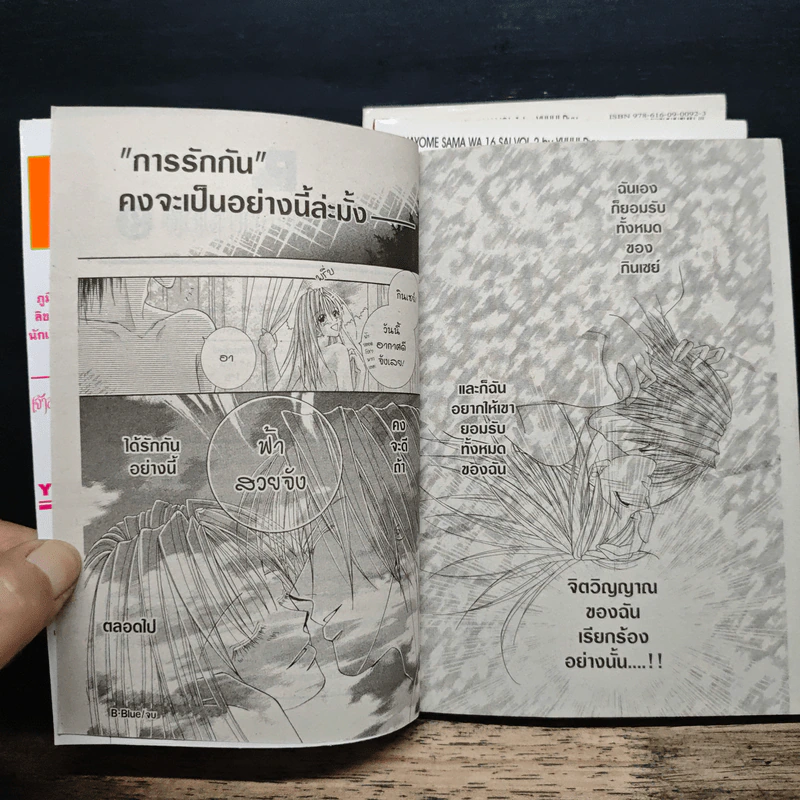 "การรักกัน"
คงจะเป็นอย่างนี้ล่ะมั้ง
พรึ่บ
กินเซย์
วันนี้
อากาศดี
จังเลย!
อา
คง
จะดี
ถ้า
ฟ้า
สวยจัง
ได้รักกัน
อย่างนี้
ตลอดไป
B·Blue/จบ
ฉันเอง
ก็ยอมรับ
ทั้งหมด
ของ
กินเซย์
และก็ฉัน
อยากให้เขา
ยอมรับ
ทั้งหมด
ของฉัน
จิตวิญญาณ
ของฉัน
เรียกร้อง
อย่างนั้น....!!
ISBN 978-616-09-0092-3
YOME SAMA WA 16 SAI VOL.2 by YUUUI